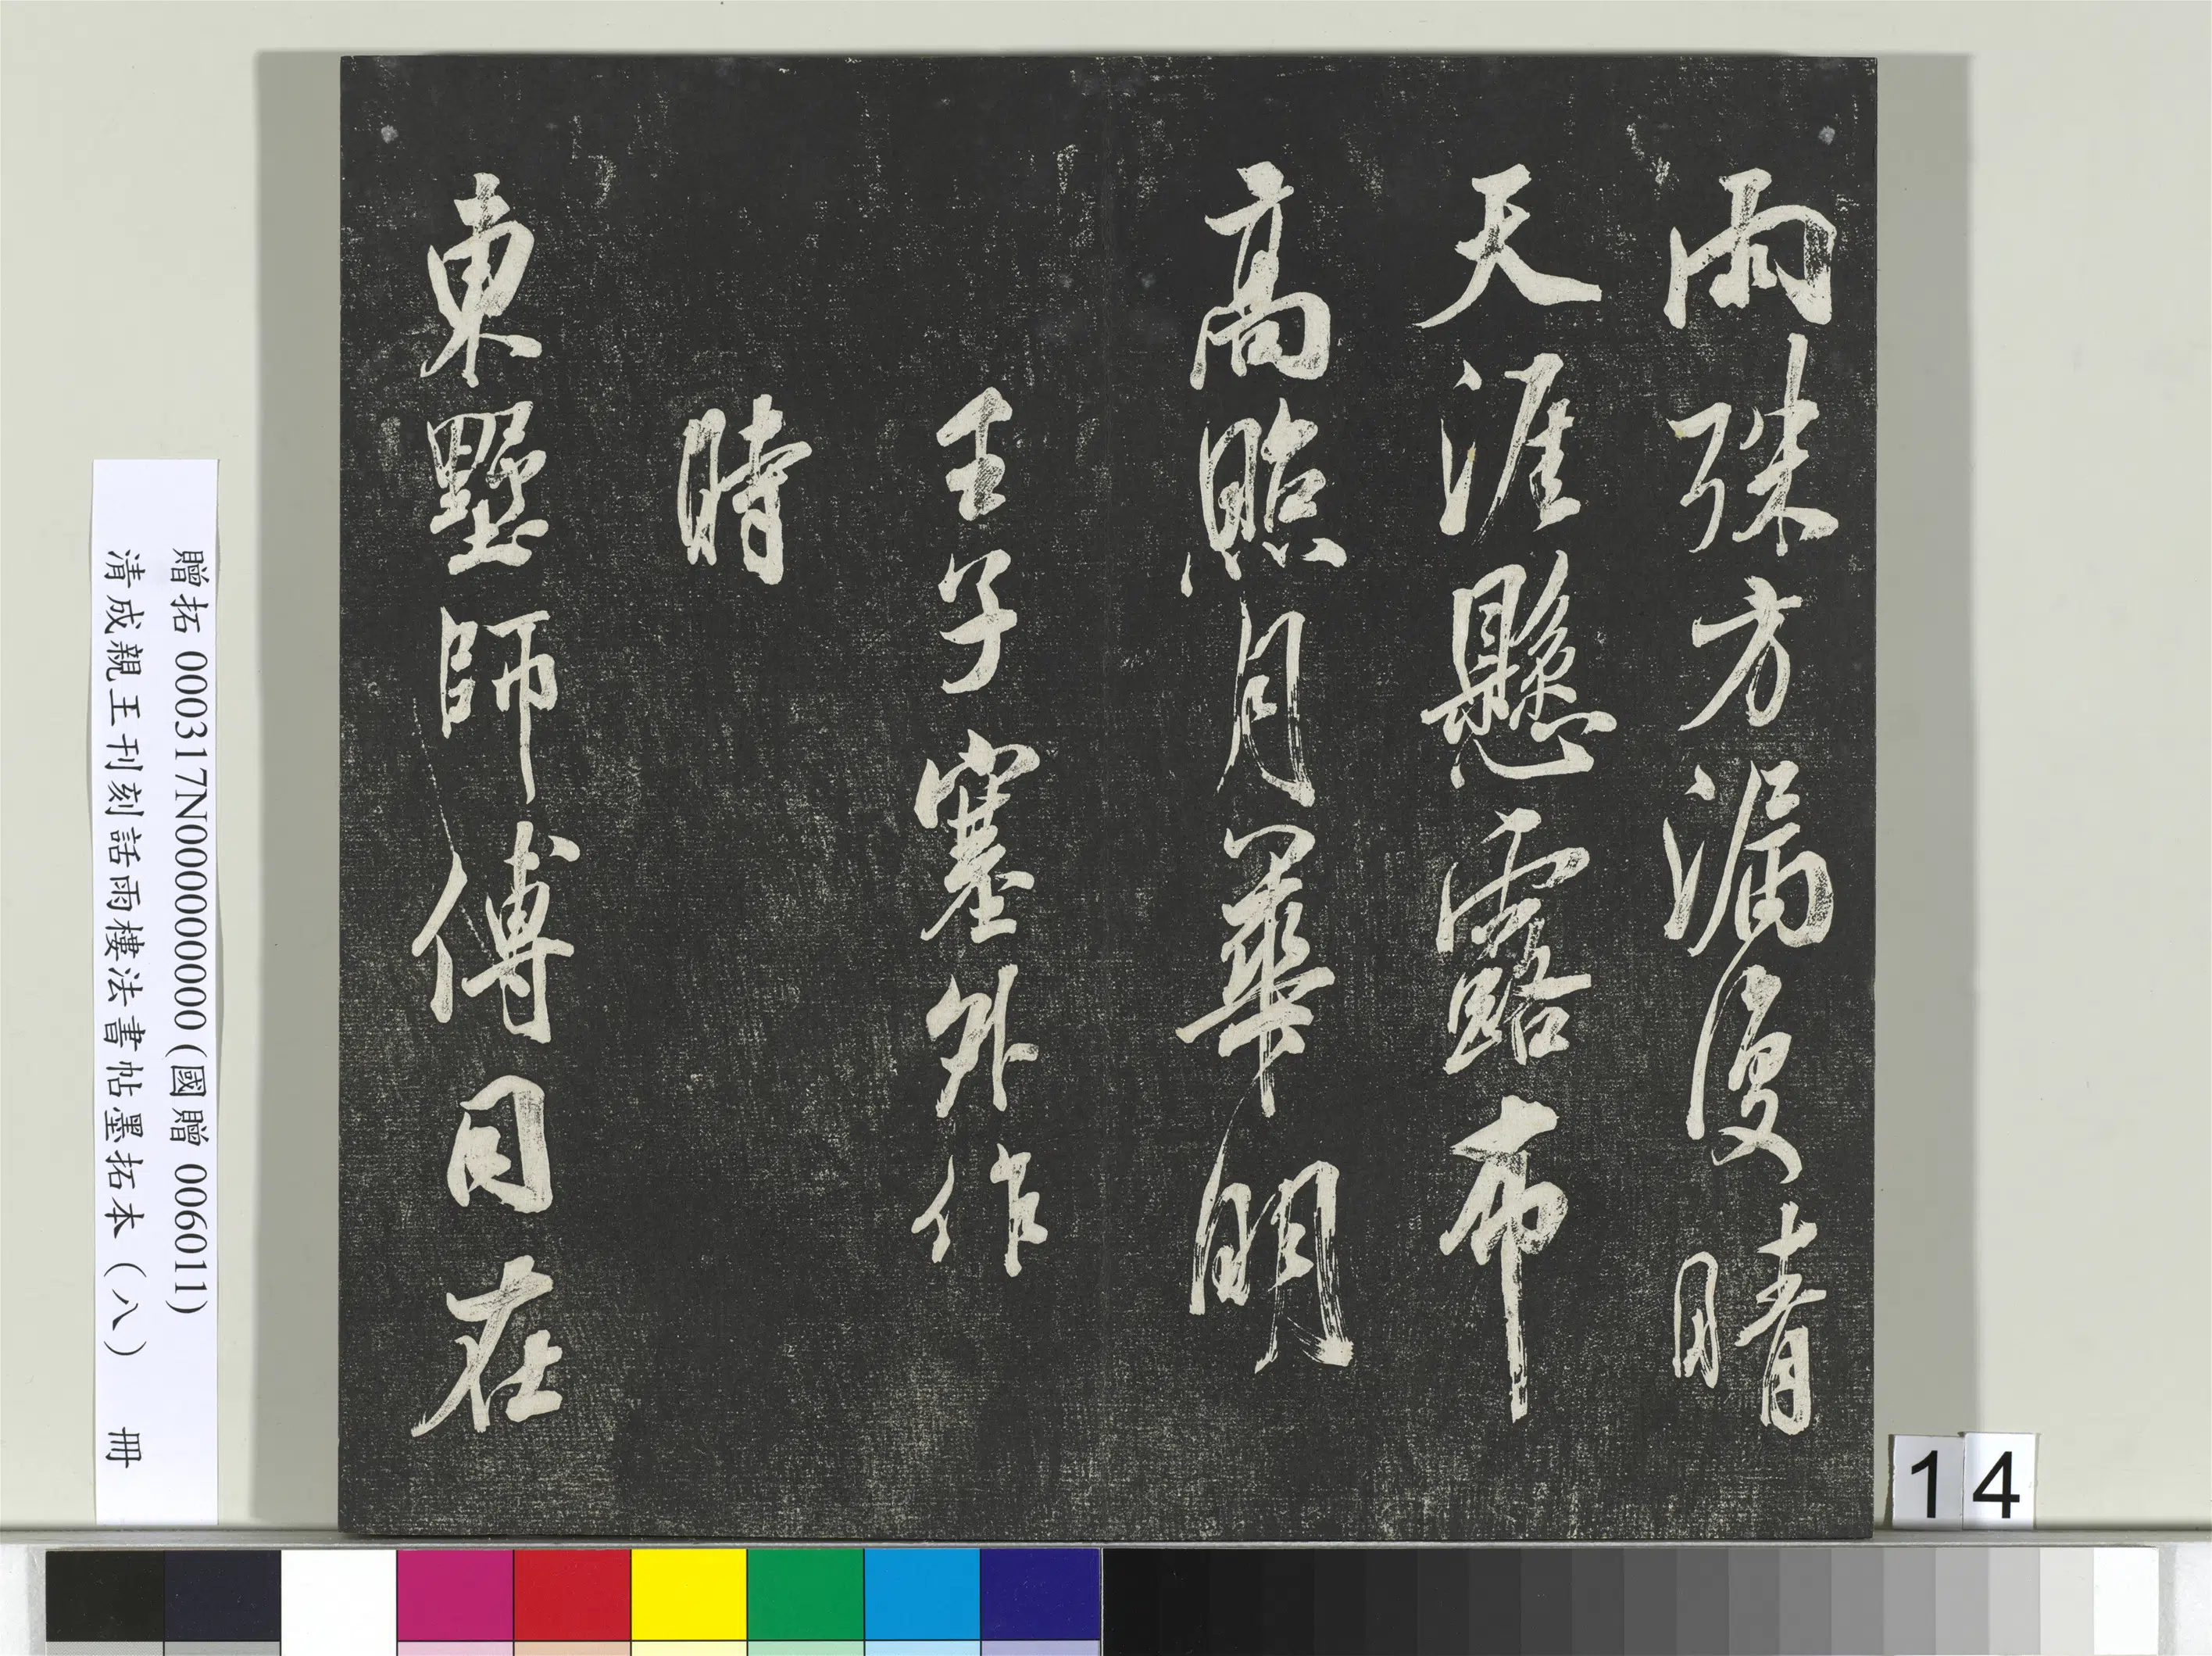 雨殊方漏復晴
天涯懸露布
高照月華明
壬子塞外作
時
東墅師傅同在
贈拓 000317N000000000 (國贈 006011)
清成親王刊刻話雨樓法書帖墨拓本（八） 冊
14